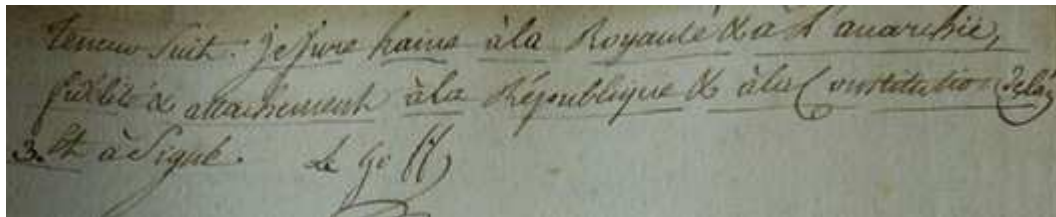 teneur suit: je jure haine à la Royauté & à L'anarchie,
fidélité & attachement à la République & à la Constitution de l'an
3. Et à signé. Le Goff